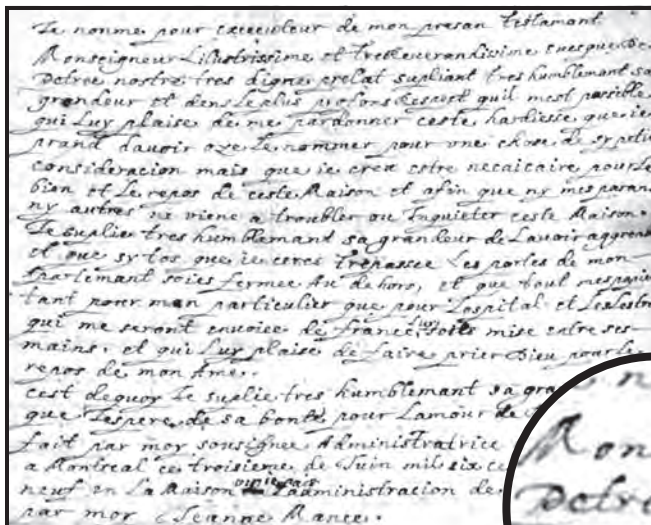 Je nomme pour excecuteur de mon presan testamant
Monseigneur Lilustrissime et tres Reverandisime evesque De
Petree nostre tres digne prelat supliant tres humblement sa
grandeur et dens le plus profons Respect quil mest possible
qui Luy plaise de me pardonner ceste hardiesse que ie
prand davoir oze Le nommer pour une chose de sy petite
consideracion mais que ie creu estre necaicaire pour Le
bien et Le repos de ceste Maison et afin que ny mes parans
ny autres ne viene a troubler ou Inquieter ceste Maison.
Je suplie tres humblemant sa grandeur de Lavoir aggreable
et que sy tos que ie ceres trepassee Les portes de mon
partemant soies fermee Au dehors, et que tout mes papiers
tant pour mon particulier que pour Lospital et Les Lestres
qui me seront envoiee de france Luy soits mise entre ses
mains. et qui Luy plaise de faire prier Dieu pour Le
repos de mon Ame.
cest dequoy Je suplie tres humblemant sa gra
que Jespere de sa bonte pour Lamour de
fait par moy sousignee Administratrice
a Montreal ce troisieme de Juin mil six ce
neuf en La Maison Ladministracion de
par moy Jeanne Mance.
Mon
Petre